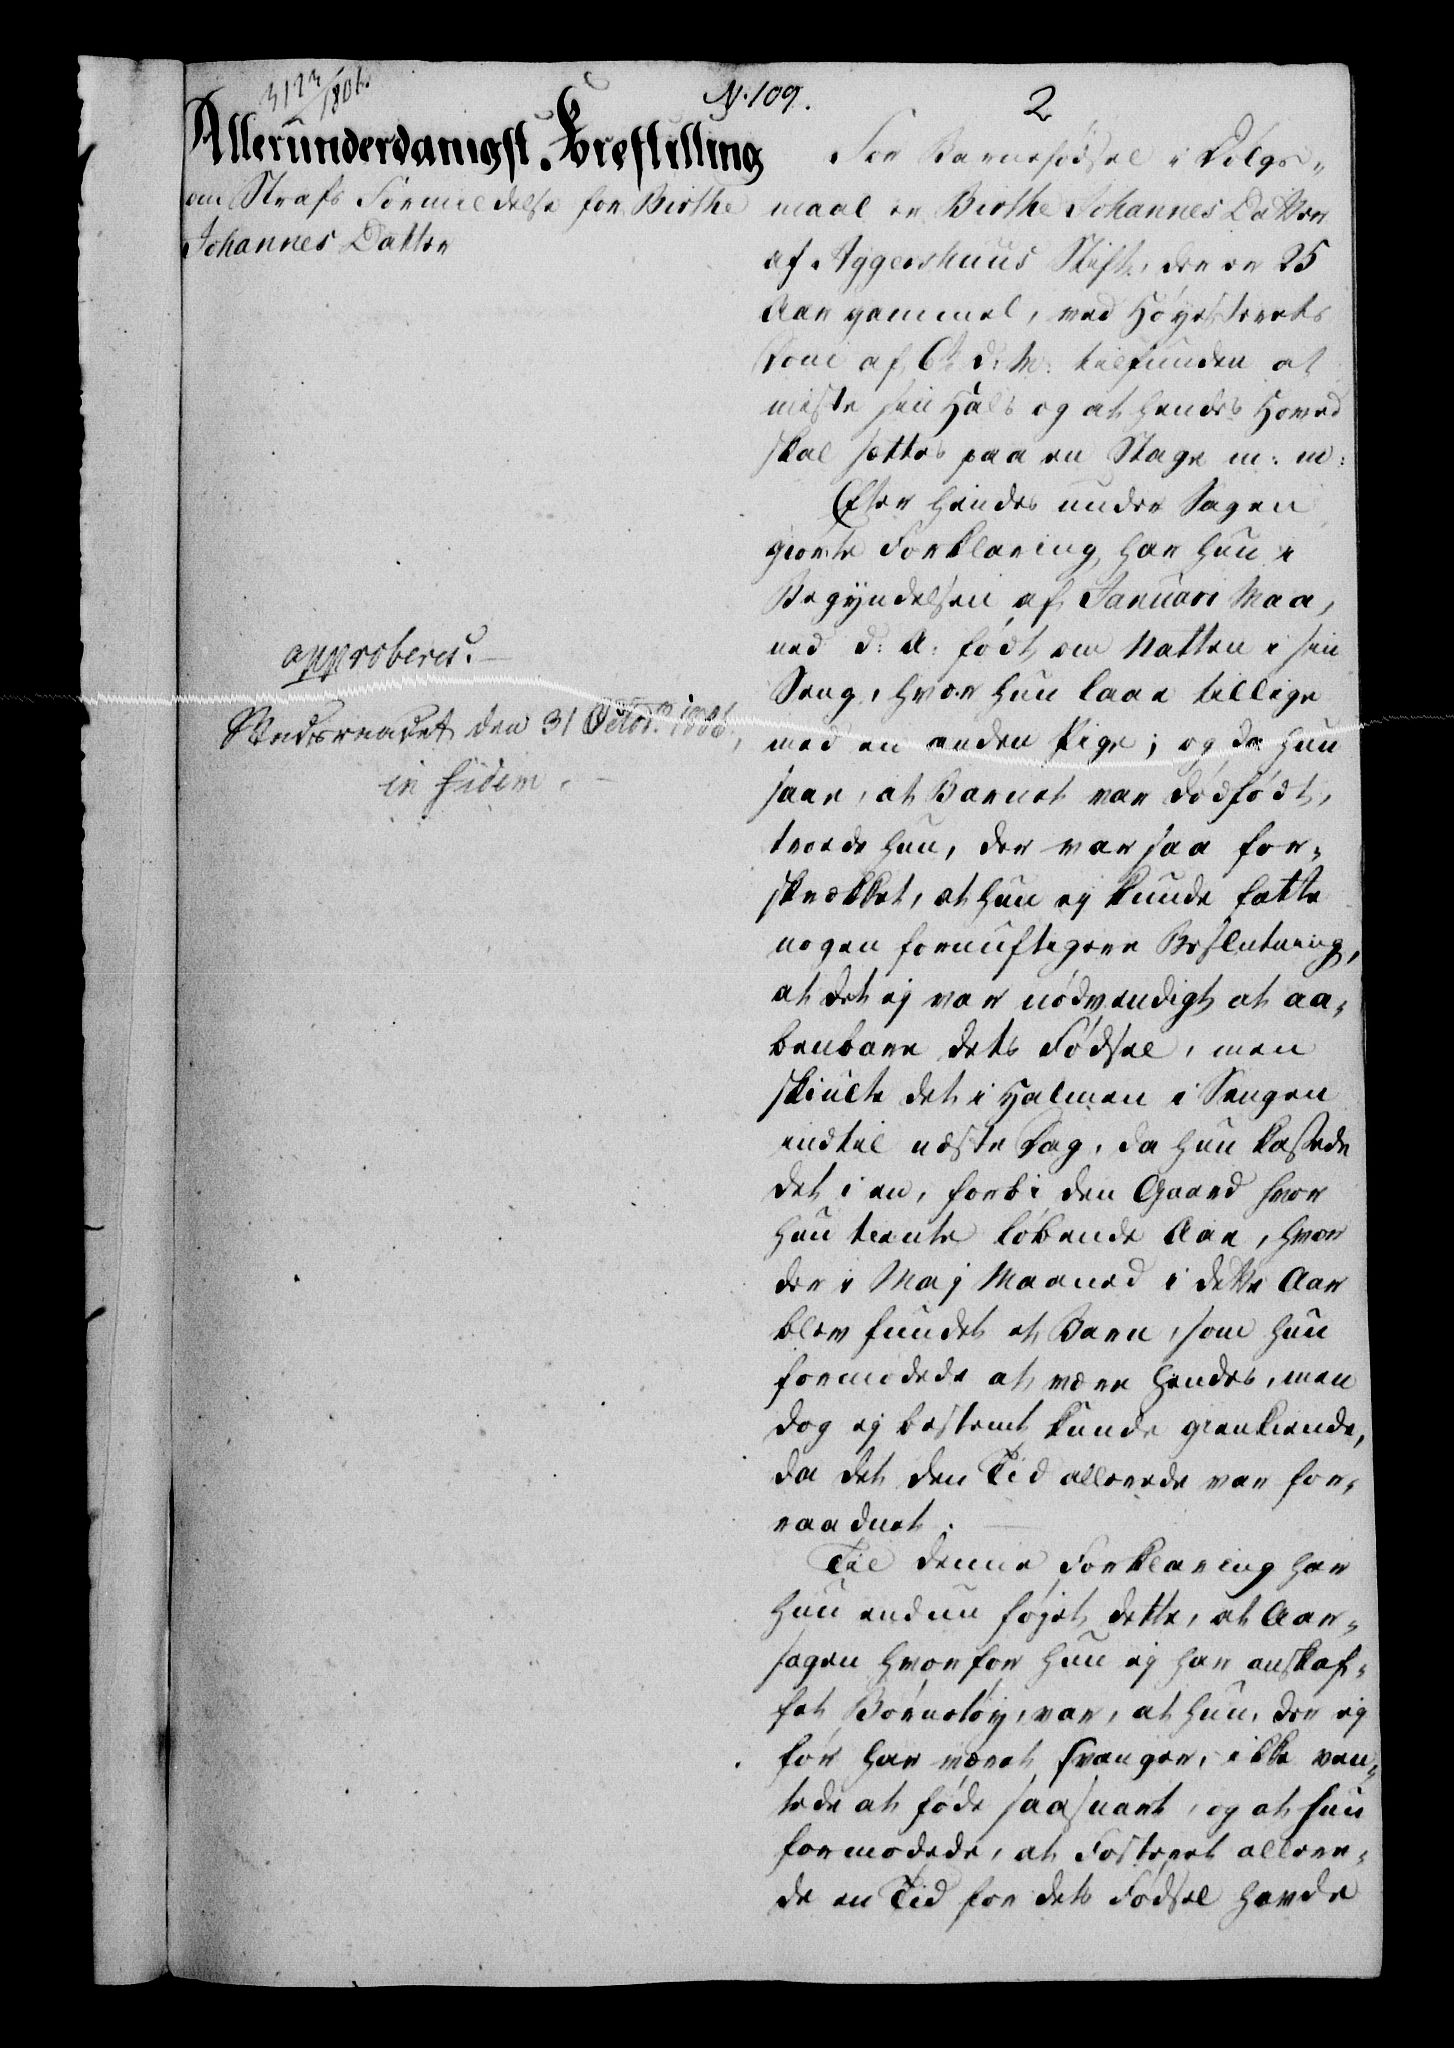 3123/1801.
N. 109.
2
Allerunderdanigst Forestilling
om Strafs Formildelse for Birthe
Johannes Datter
approberes.
den 31 Octobr.
in fidem.
For Barnefødsel i Dølgs-
maal er Birthe Johannes Datter
af Aggershuus Stift, der er 25
Aar gammel, ved Høyesterets
Dom af 6te d: M: tilfunden at
miste sin Hals og at hendes Hoved
skal sættes paa en Stage m: m:
Efter hendes under Sagen
giorte Forklaring har hun i
Begyndelsen af Januari Maa-
ned d: A: født om Natten i sin
Seng, hvor hun laae tillige
med en anden Pige; og da hun
saae, at Barnet var dødfødt,
troede hun, der var saa for-
skrækket, at hun ej kunde fatte
nogen fornuftigere Beslutning,
at det ej var nødvendigt at aa-
benbare dets Fødsel, men
skiulte det i Halmen i Sengen
indtil næste Dag, da hun kastede
det i en, forbi den Gaard hvor
hun tiente løbende Aae, hvor
der i Maj Maaned i dette Aar
blev fundet et Barn, som hun
formodede at være hendes, men
dog ej bestemt kunde gienkiende,
da det den Tid allerede var for-
raadnet.
Til denne Forklaring har
hun endnu føjet dette, at Aar-
sagen hvorfor hun ej har anskaf-
fet Børnetøy, var, at hun, der ej
før har været svanger, ikke ven-
tede at føde saasnart, og at hun
formodede, at Fosteret allere-
de en Tid for dets Fødsel havde